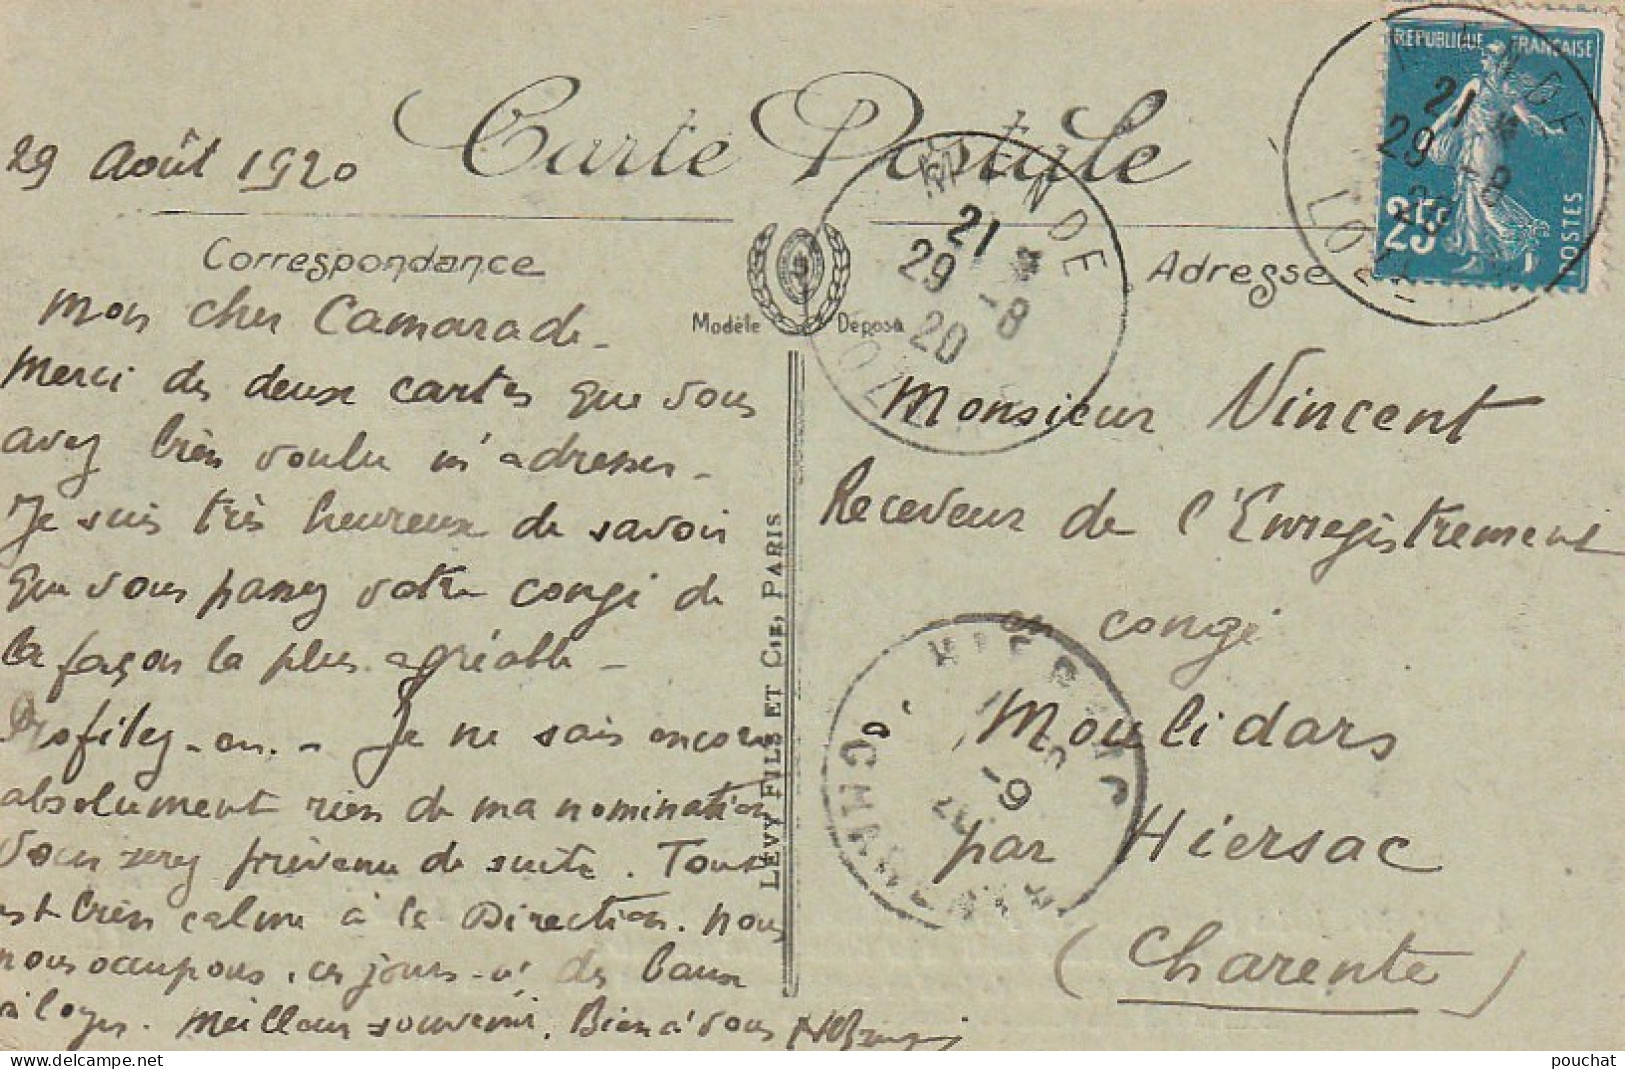 Carte Postale
29 Août 1920
Correspondance
Mon cher Camarade -
Merci des deux cartes que vous
avez bien voulu m'adresser -
Je suis très heureux de savoir
que vous passez votre congé de
la façon la plus agréable -
Profitez-en. - Je ne sais encore
absolument rien de ma nomination
Vous serez prévenu de suite. Tout
est bien calme à la Direction. Nous
nous occupons, ces jours-ci, des baux
à loyer. Meilleur souvenir. Bien à vous
Modèle Déposé
LÉVY FILS ET CIE, PARIS
Adresse
RÉPUBLIQUE FRANÇAISE
25c
POSTES
MENDE
21
29 -8
20
LOZÈRE
MENDE
21
29 -8
20
LOZÈRE
Monsieur Vincent
Receveur de l'Enregistrement
en congé
Moulidars
par Hiersac
(Charente)
HIERSAC
-9
20
CHARENTE
pouchat